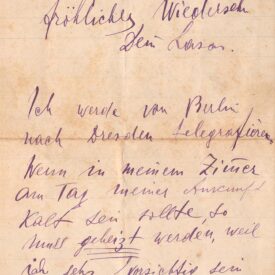 fröhliches Wiedersehn
Dein Lasar.
Ich werde von Berlin
nach Dresden telegrafieren
Wenn in meinem Zimer
am Tag meiner Ankunft
Kalt sein sollte, so
muss geheizt werden, weil
ich sehr vorsichtig sein